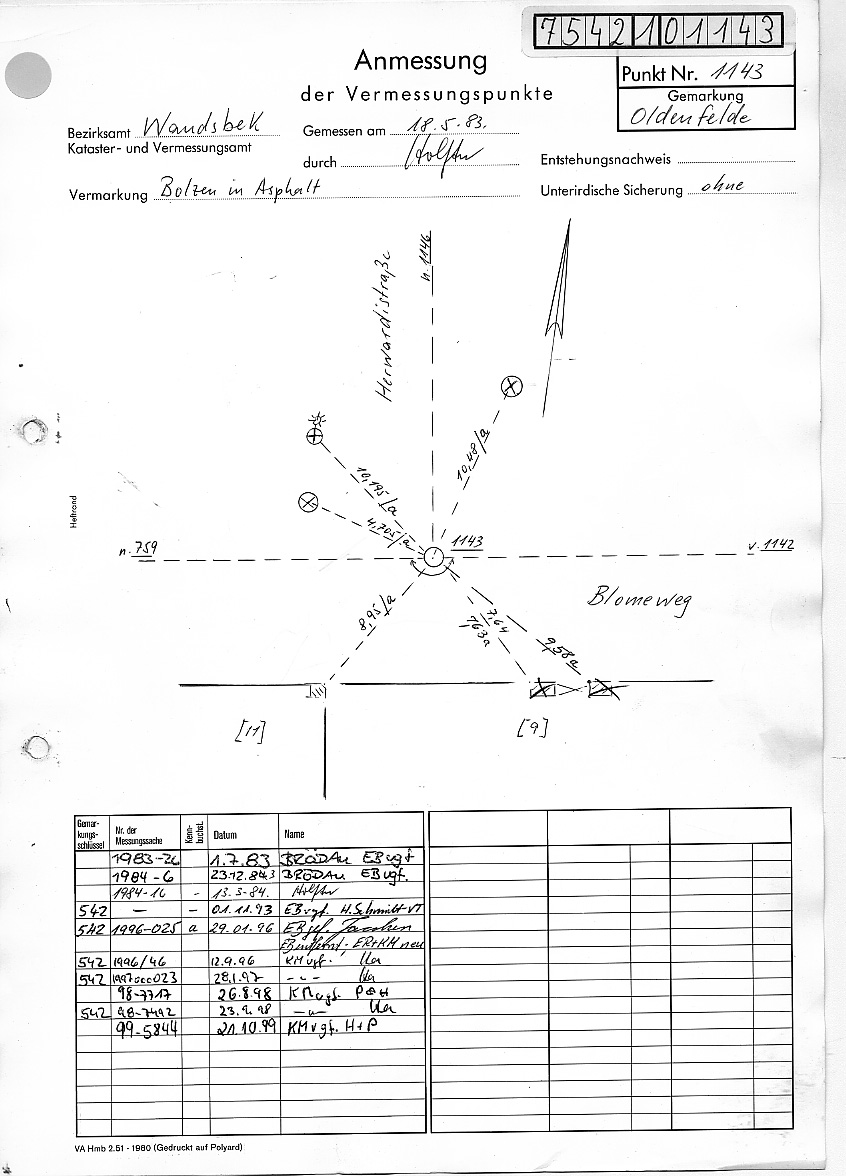 7542101143
Anmessung
der Vermessungspunkte
Punkt Nr. 1143
Gemarkung
Oldenfelde
Bezirksamt Wandsbek
Kataster- und Vermessungsamt
Gemessen am 18.5.83.
durch Holfter
Entstehungsnachweis
Vermarkung Bolzen in Asphalt
Unterirdische Sicherung ohne
Herwardistraße
n. 1146
10,48/a
10,195/a
4,705/a
Heftrand
n. 759
1143
v. 1142
Blomeweg
8,95/a
7,64
763a
9,58a
[11]
[9]
Gemar-
kungs-
schlüssel
Nr. der
Messungssache
Kenn-
buchst.
Datum
Name
1983-26 1.7.83 BRÖDAU EB vgf
1984-6 23.12.843 BRÖDAU EB vgf.
1984-16 - 13.3-84. Holfter
542 - - 01.11.93 EB vgf. H.Schmidt VT
542 1996-025 a 29.01.96 EB gef.
EB entfernt - ER+KM neu
542 1996/46 12.9.96 KM vgf.
542 1997 000023 28.1.97 - " -
98-7717 26.8.98 KM vgf. P+H
542 98-7492 23.9.98 - " -
99-5844 21.10.99 KM vgf. H+P
VA Hmb 2.51 - 1980 (Gedruckt auf Polyard)